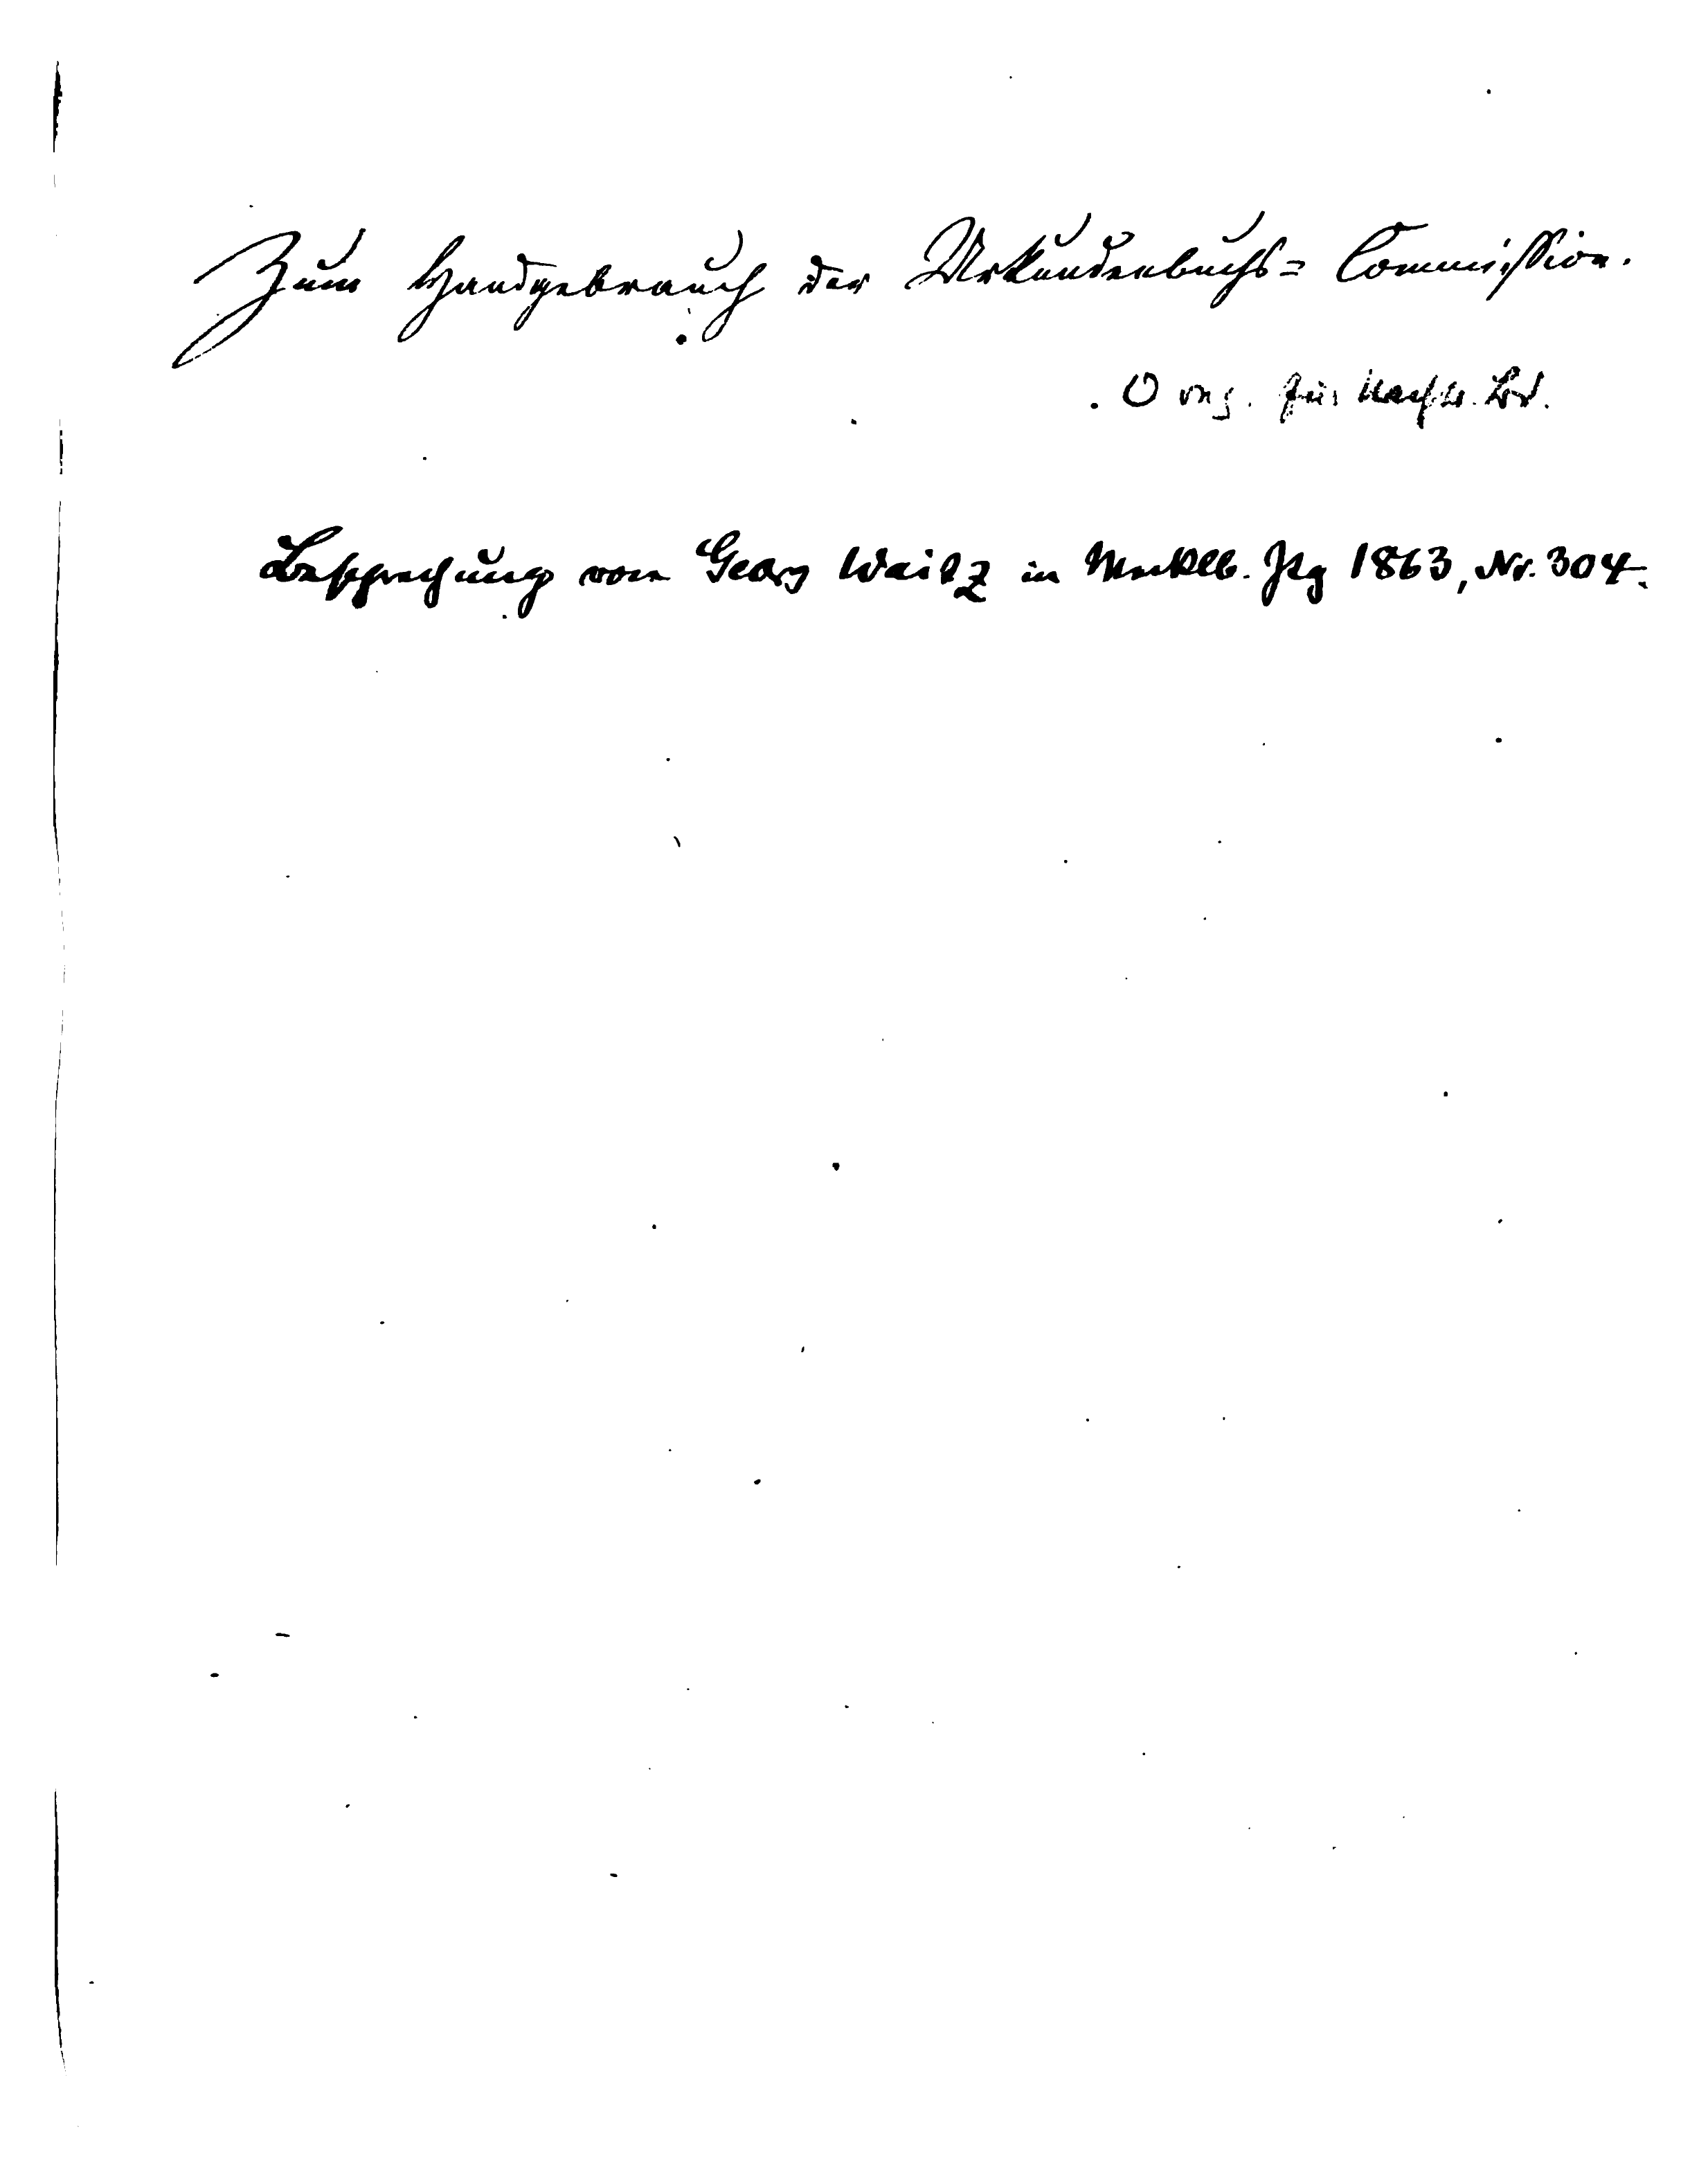 Zum Handgebrauch der Urkundenbuchs= Commission.
für Nachtr. Bd.
Besprechung von Georg Waitz in Mecklb. Ztg 1863, Nr. 304.